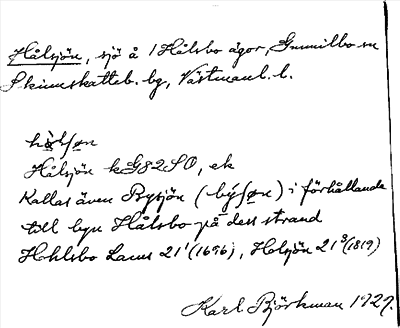 Hålsjön, sjö å Hålsbo ägor, Gunnilbo sn
Skinnskatteb. bg, Västmanl. l.
hòlʃøn
Hålsjön kG82SO, ek
Kallas även Bysjön (býʃøn) i förhållande
till byn Hålsbo på dess strand
Hohlsbo 21¹ (1696), Holsjön 21² (1819)
Karl Björkman 1927.